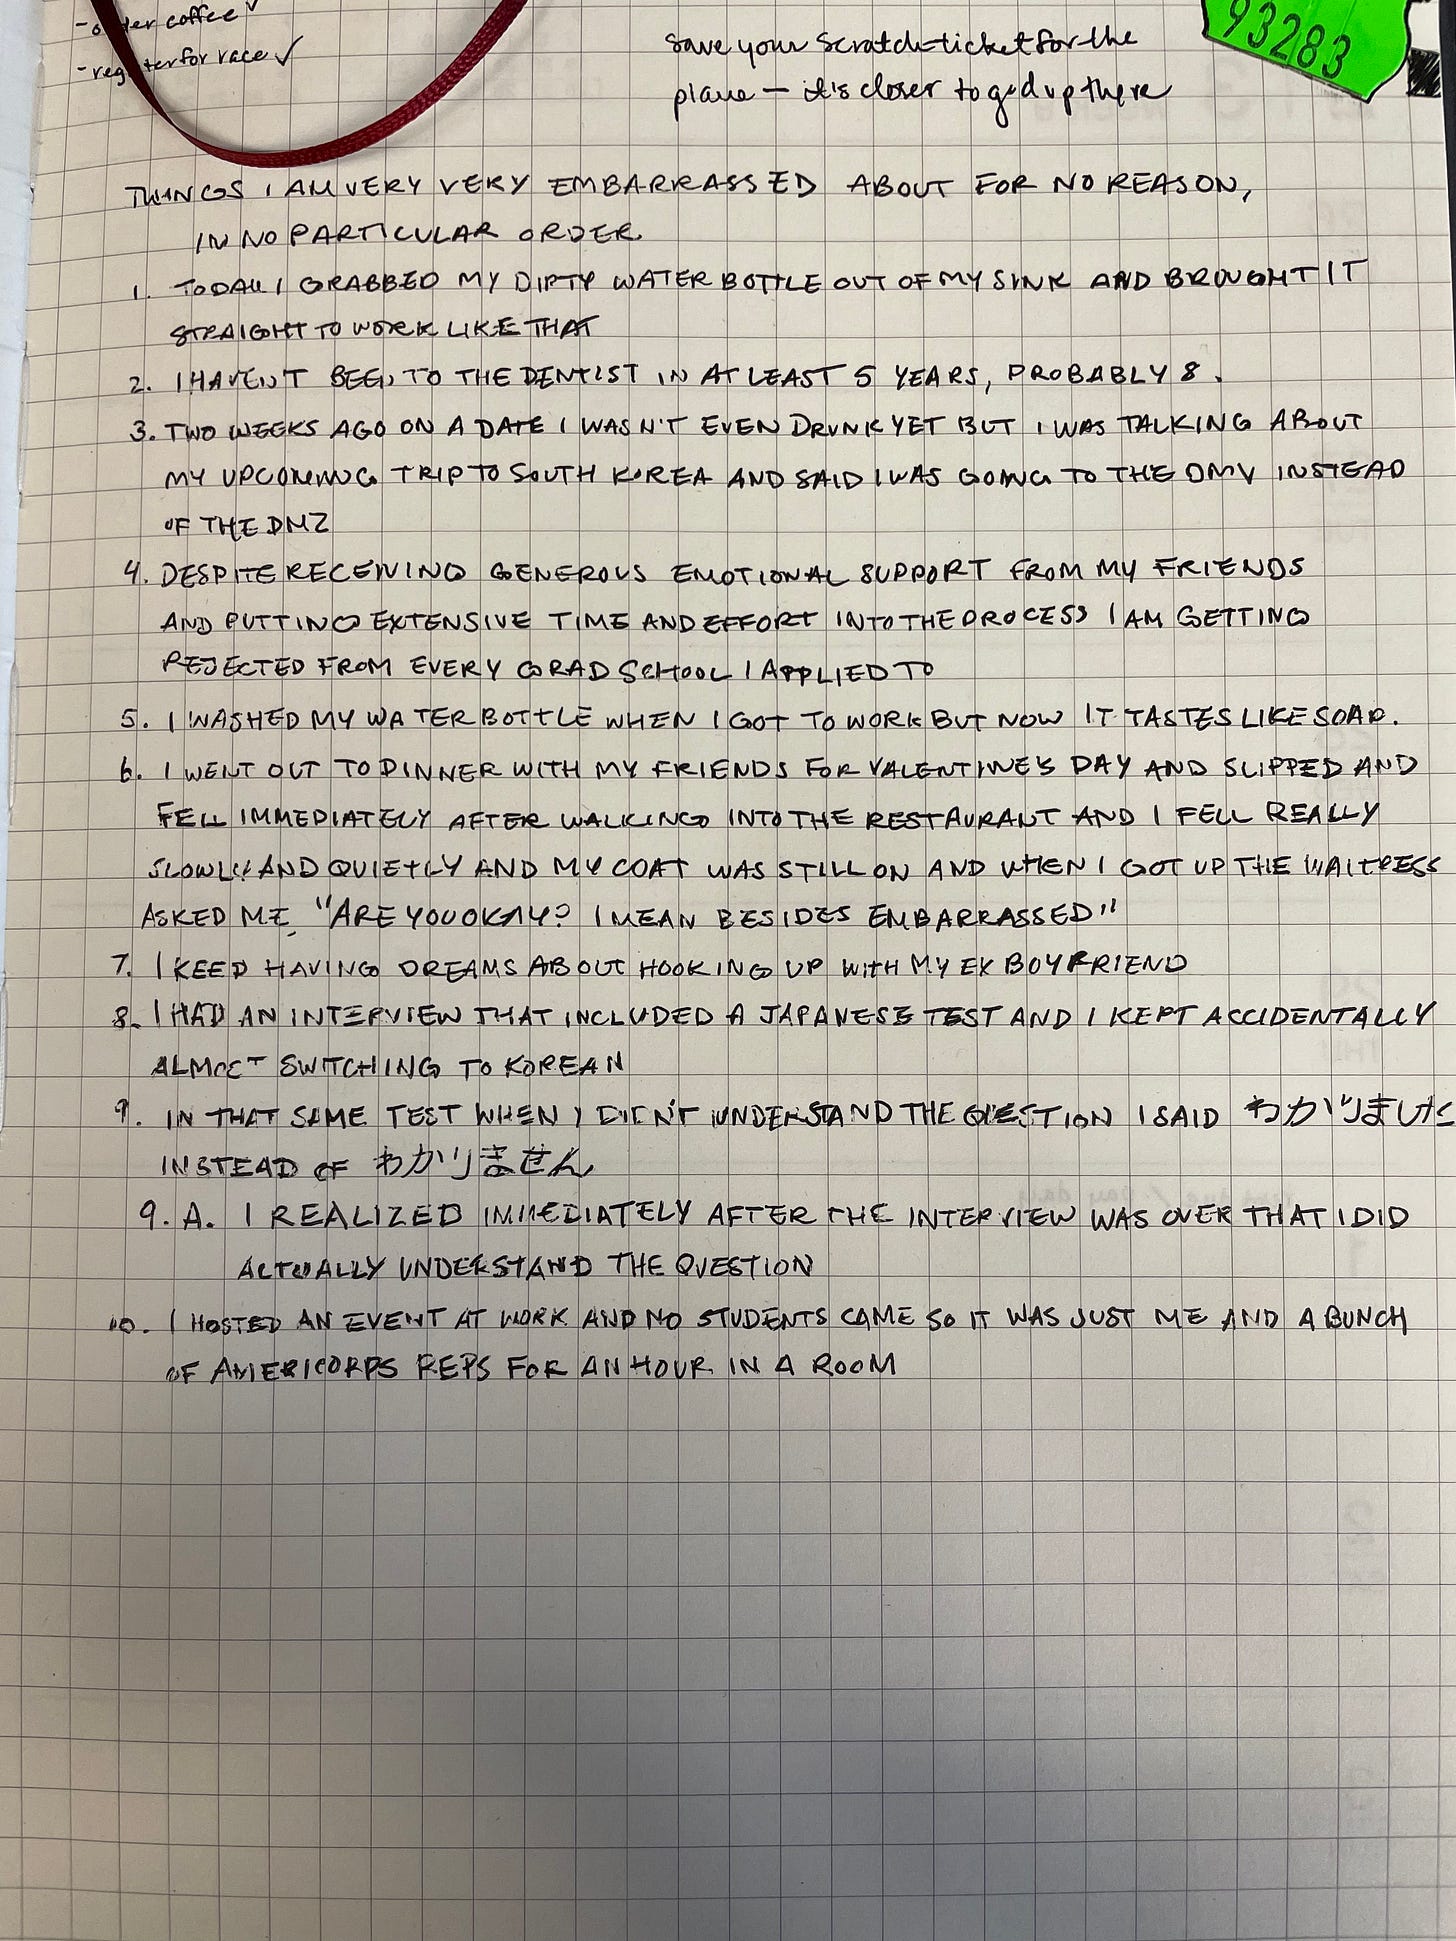 - order coffee ✓
- register for race ✓
save your scratch-ticket for the
plane — it's closer to god up there
93283
THINGS I AM VERY VERY EMBARRASSED ABOUT FOR NO REASON,
IN NO PARTICULAR ORDER
1. TODAY I GRABBED MY DIRTY WATER BOTTLE OUT OF MY SINK AND BROUGHT IT
STRAIGHT TO WORK LIKE THAT
2. I HAVEN'T BEEN TO THE DENTIST IN AT LEAST 5 YEARS, PROBABLY 8.
3. TWO WEEKS AGO ON A DATE I WASN'T EVEN DRUNK YET BUT I WAS TALKING ABOUT
MY UPCOMING TRIP TO SOUTH KOREA AND SAID I WAS GOING TO THE DMV INSTEAD
OF THE DMZ
4. DESPITE RECEIVING GENEROUS EMOTIONAL SUPPORT FROM MY FRIENDS
AND PUTTING EXTENSIVE TIME AND EFFORT INTO THE PROCESS I AM GETTING
REJECTED FROM EVERY GRAD SCHOOL I APPLIED TO
5. I WASHED MY WATER BOTTLE WHEN I GOT TO WORK BUT NOW IT TASTES LIKE SOAP.
6. I WENT OUT TO DINNER WITH MY FRIENDS FOR VALENTINE'S DAY AND SLIPPED AND
FELL IMMEDIATELY AFTER WALKING INTO THE RESTAURANT AND I FELL REALLY
SLOWLY AND QUIETLY AND MY COAT WAS STILL ON AND WHEN I GOT UP THE WAITRESS
ASKED ME, "ARE YOU OKAY? I MEAN BESIDES EMBARRASSED"
7. I KEEP HAVING DREAMS ABOUT HOOKING UP WITH MY EX BOYFRIEND
8. I HAD AN INTERVIEW THAT INCLUDED A JAPANESE TEST AND I KEPT ACCIDENTALLY
ALMOST SWITCHING TO KOREAN
9. IN THAT SAME TEST WHEN I DIDN'T UNDERSTAND THE QUESTION I SAID わがりました
INSTEAD OF わかりません
9. A. I REALIZED IMMEDIATELY AFTER THE INTERVIEW WAS OVER THAT I DID
ACTUALLY UNDERSTAND THE QUESTION
10. I HOSTED AN EVENT AT WORK AND NO STUDENTS CAME SO IT WAS JUST ME AND A BUNCH
OF AMERICORPS REPS FOR AN HOUR IN A ROOM